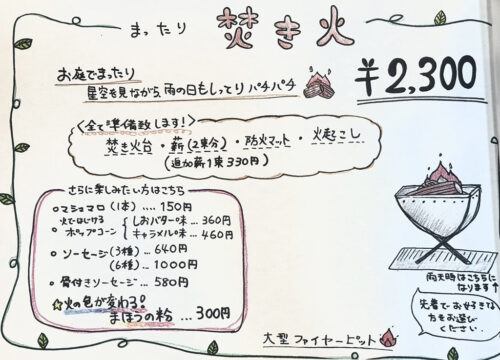 まったり 焚き火
お庭でまったり
星空を見ながら、雨の日もしっとりパチパチ
¥2,300
<全て準備致します!>
焚き火台・薪(2束分)・防火マット・火起こし
(追加薪1束330円)
さらに楽しみたい方はこちら
○マシュマロ(1本)....150円
火ではじける
○ポップコーン
しおバター味...360円
キャラメル味...460円
○ソーセージ(3種)...640円
(6種)...1000円
○骨付きソーセージ...580円
☆火の色が変わる!
まほうの粉...300円
雨天時はこちらに
なります↑
先着でお好きな
方をお選び
ください。
大型ファイヤーピット